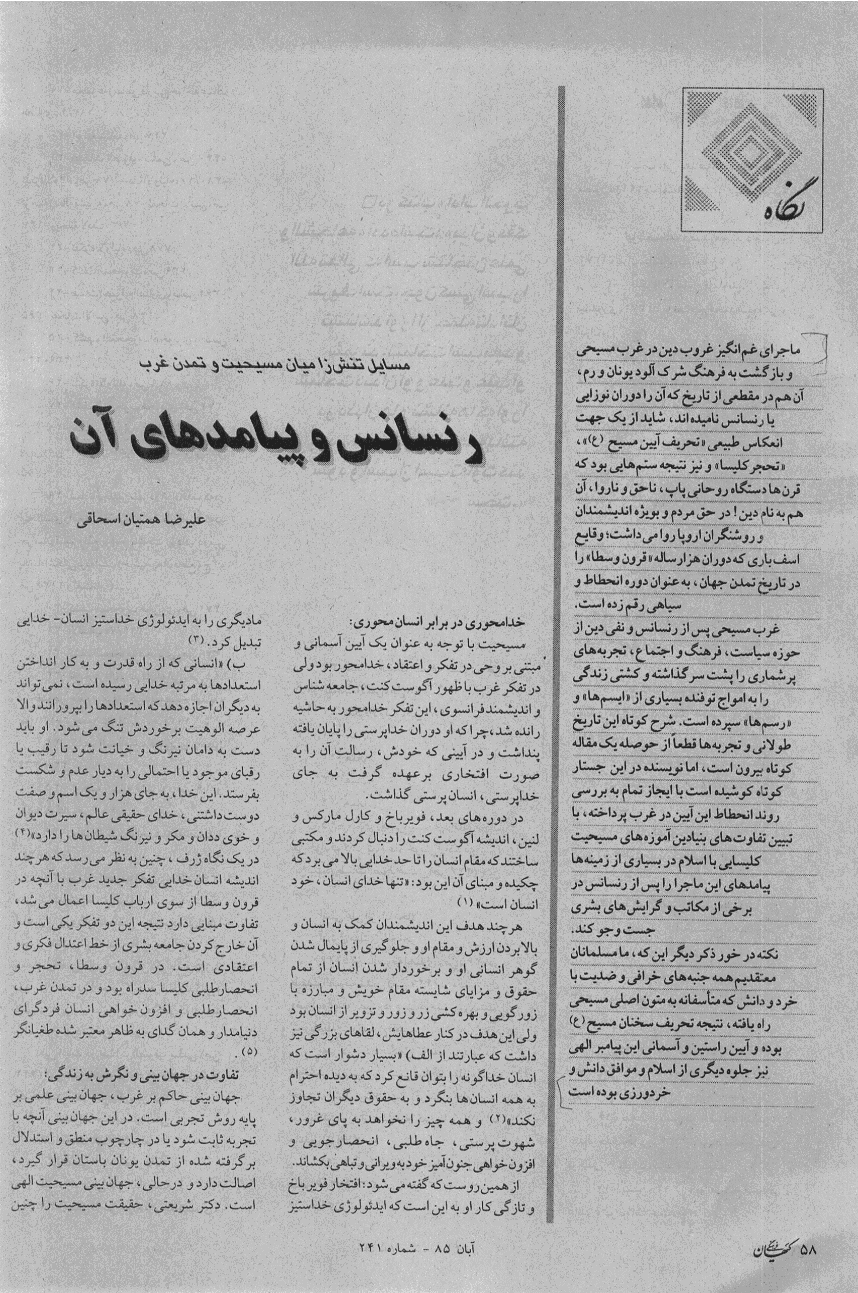 نگاه
ماجرای غم‌انگیز غروب دین در غرب مسیحی
و بازگشت به فرهنگ شرک آلود یونان و رم،
آن هم در مقطعی از تاریخ که آن را دوران نوزایی
یا رنسانس نامیده‌اند، شاید از یک جهت
انعکاس طبیعی «تحریف آیین مسیح (ع)»،
«تحجر کلیسا» و نیز نتیجه ستم‌هایی بود که
قرن‌ها دستگاه روحانی پاپ، ناحق و ناروا، آن
هم به نام دین! در حق مردم و بویژه اندیشمندان
و روشنگران اروپا روا می‌داشت؛ وقایع
اسف‌باری که دوران هزارساله «قرون وسطا» را
در تاریخ تمدن جهان، به عنوان دوره انحطاط و
سیاهی رقم زده است.
غرب مسیحی پس از رنسانس و نفی دین از
حوزه سیاست، فرهنگ و اجتماع، تجربه‌های
پرشماری را پشت سر گذاشته و کشتی زندگی
را به امواج توفنده بسیاری از «ایسم‌ها» و
«رسم‌ها» سپرده است. شرح کوتاه این تاریخ
طولانی و تجربه‌ها قطعاً از حوصله یک مقاله
کوتاه بیرون است، اما نویسنده در این جستار
کوتاه کوشیده است با ایجاز تمام به بررسی
روند انحطاط این آیین در غرب پرداخته، با
تبیین تفاوت‌های بنیادین آموزه‌های مسیحیت
کلیسایی با اسلام در بسیاری از زمینه‌ها
پیامدهای این ماجرا را پس از رنسانس در
برخی از مکاتب و گرایش‌های بشری
جست و جو کند.
نکته در خور ذکر دیگر این که، ما مسلمانان
معتقدیم همه جنبه‌های خرافی و ضدیت با
خرد و دانش که متأسفانه به متون اصلی مسیحی
راه یافته، نتیجه تحریف سخنان مسیح (ع)
بوده و آیین راستین و آسمانی این پیامبر الهی
نیز جلوه دیگری از اسلام و موافق دانش و
خردورزی بوده است
مسایل تنش‌زا میان مسیحیت و تمدن غرب
رنسانس و پیامدهای آن
علیرضا همتیان اسحاقی
خدامحوری در برابر انسان محوری:
مسیحیت با توجه به عنوان یک آیین آسمانی و
مبتنی بر وحی در تفکر و اعتقاد، خدامحور بود ولی
در تفکر غرب با ظهور آگوست کنت، جامعه شناس
و اندیشمند فرانسوی، این تفکر خدامحور به حاشیه
رانده شد، چرا که او دوران خداپرستی را پایان یافته
پنداشت و در آیینی که خودش، رسالت آن را به
صورت افتخاری برعهده گرفت به جای
خداپرستی، انسان پرستی گذاشت.
در دوره‌های بعد، فویرباخ و کارل مارکس و
لنین، اندیشه آگوست کنت را دنبال کردند و مکتبی
ساختند که مقام انسان را تا حد خدایی بالا می‌برد که
چکیده و مبنای آن این بود: «تنها خدای انسان، خود
انسان است» (۱)
هر چند هدف این اندیشمندان کمک به انسان و
بالا بردن ارزش و مقام او و جلوگیری از پایمال شدن
گوهر انسانی او و برخوردار شدن انسان از تمام
حقوق و مزایای شایسته مقام خویش و مبارزه با
زورگویی و بهره کشی زر و زور و تزویر از انسان بود
ولی این هدف در کنار عطاهایش، لقاهای بزرگی نیز
داشت که عبارتند از الف) «بسیار دشوار است که
انسان خداگونه را بتوان قانع کرد که به دیده احترام
به همه انسان‌ها بنگرد و به حقوق دیگران تجاوز
نکند»(۲) و همه چیز را نخواهد به پای غرور،
شهوت پرستی، جاه طلبی، انحصارجویی و
افزون خواهی جنون آمیز خود به ویرانی و تباهی بکشاند.
از همین روست که گفته می‌شود: افتخار فویرباخ
و تازگی کار او به این است که ایدئولوژی خداستیز
مادیگری را به ایدئولوژی خداستیز انسان- خدایی
تبدیل کرد. (۳)
ب) «انسانی که از راه قدرت و به کار انداختن
استعدادها به مرتبه خدایی رسیده است، نمی‌تواند
به دیگران اجازه دهد که استعدادها را بپرورانند والا
عرصه الوهیت برخوردش تنگ می‌شود. او باید
دست به دامان نیرنگ و خیانت شود تا رقیب یا
رقبای موجود یا احتمالی را به دیار عدم و شکست
بفرستد. این خدا، به جای هزار و یک اسم و صفت
دوست داشتنی، خدای حقیقی عالم، سیرت دیوان
و خوی ددان و مکر و نیرنگ شیطان‌ها را دارد»(۴)
در یک نگاه ژرف، چنین به نظر می‌رسد که هر چند
اندیشه انسان خدایی تفکر جدید غرب با آنچه در
قرون وسطا از سوی ارباب کلیسا اعمال می‌شد،
تفاوت مبنایی دارد نتیجه این دو تفکر یکی است و
آن خارج کردن جامعه بشری از خط اعتدال فکری و
اعتقادی است. در قرون وسطا، تحجر و
انحصارطلبی کلیسا سدراه بود و در تمدن غرب،
انحصارطلبی و افزون خواهی انسان فردگرای
دنیامدار و همان گدای به ظاهر معتبر شده طغیانگر
(۵).
تفاوت در جهان بینی و نگرش به زندگی؛
جهان بینی حاکم بر غرب، جهان بینی علمی بر
پایه روش تجربی است. در این جهان بینی آنچه با
تجربه ثابت شود یا در چارچوب منطق و استدلال
برگرفته شده از تمدن یونان باستان قرار گیرد،
اصالت دارد و درحالی، جهان بینی مسیحیت الهی
است. دکتر شریعتی، حقیقت مسیحیت را چنین
۵۸ کیهان فرهنگی
آبان ۸۵ - شماره ۲۴۱